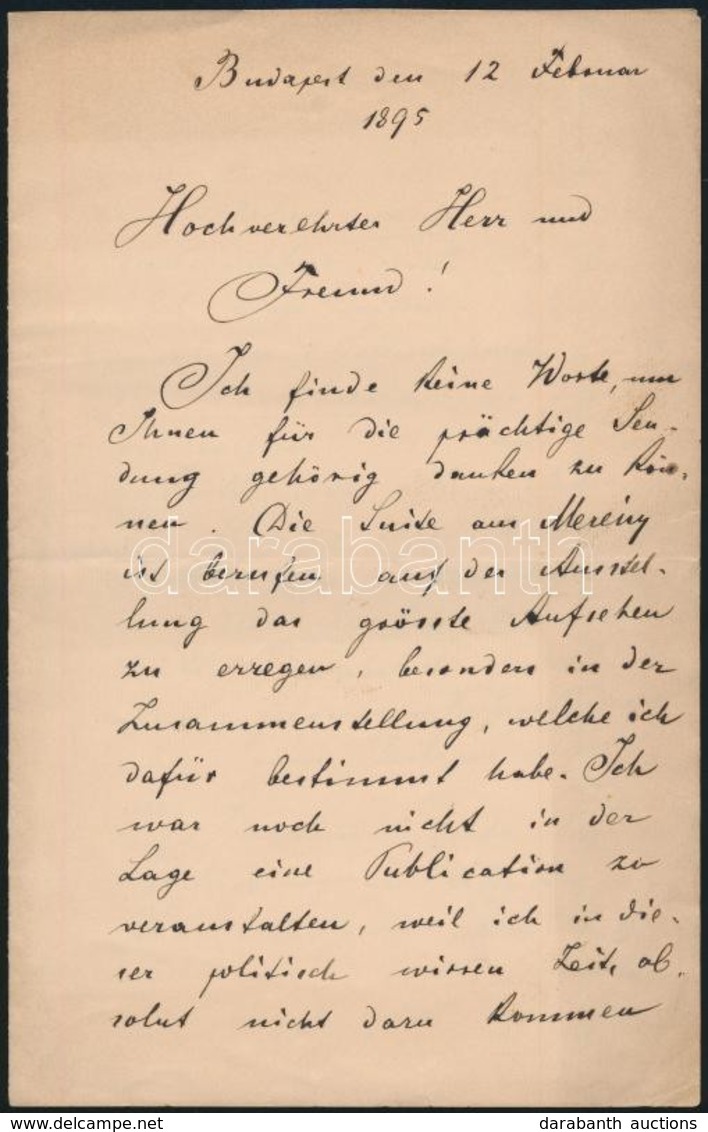 Budapest den 12 Februar
1895
Hochverehrter Herr und
Freund!
Ich finde keine Worte, um
Ihnen für die prächtige Sen-
dung gehörig danken zu kön-
nen. Die Suite aus Mereny
ist berufen auf der Ausstel-
lung das grösste Aufsehen
zu erregen, besonders in der
Zusammenstellung, welche ich
dafür bestimmt habe. Ich
war noch nicht in der
Lage eine Publication zu
veranstalten, weil ich in die-
ser politisch wirren Zeit, ab-
solut nicht dazu kommen
darabanth
darabanth auctions